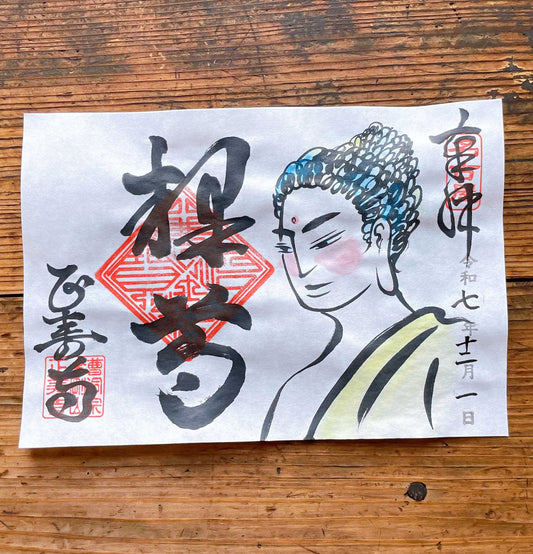 奉拝
令和七年十二月一日
釈尊
正寿寺
曹洞宗